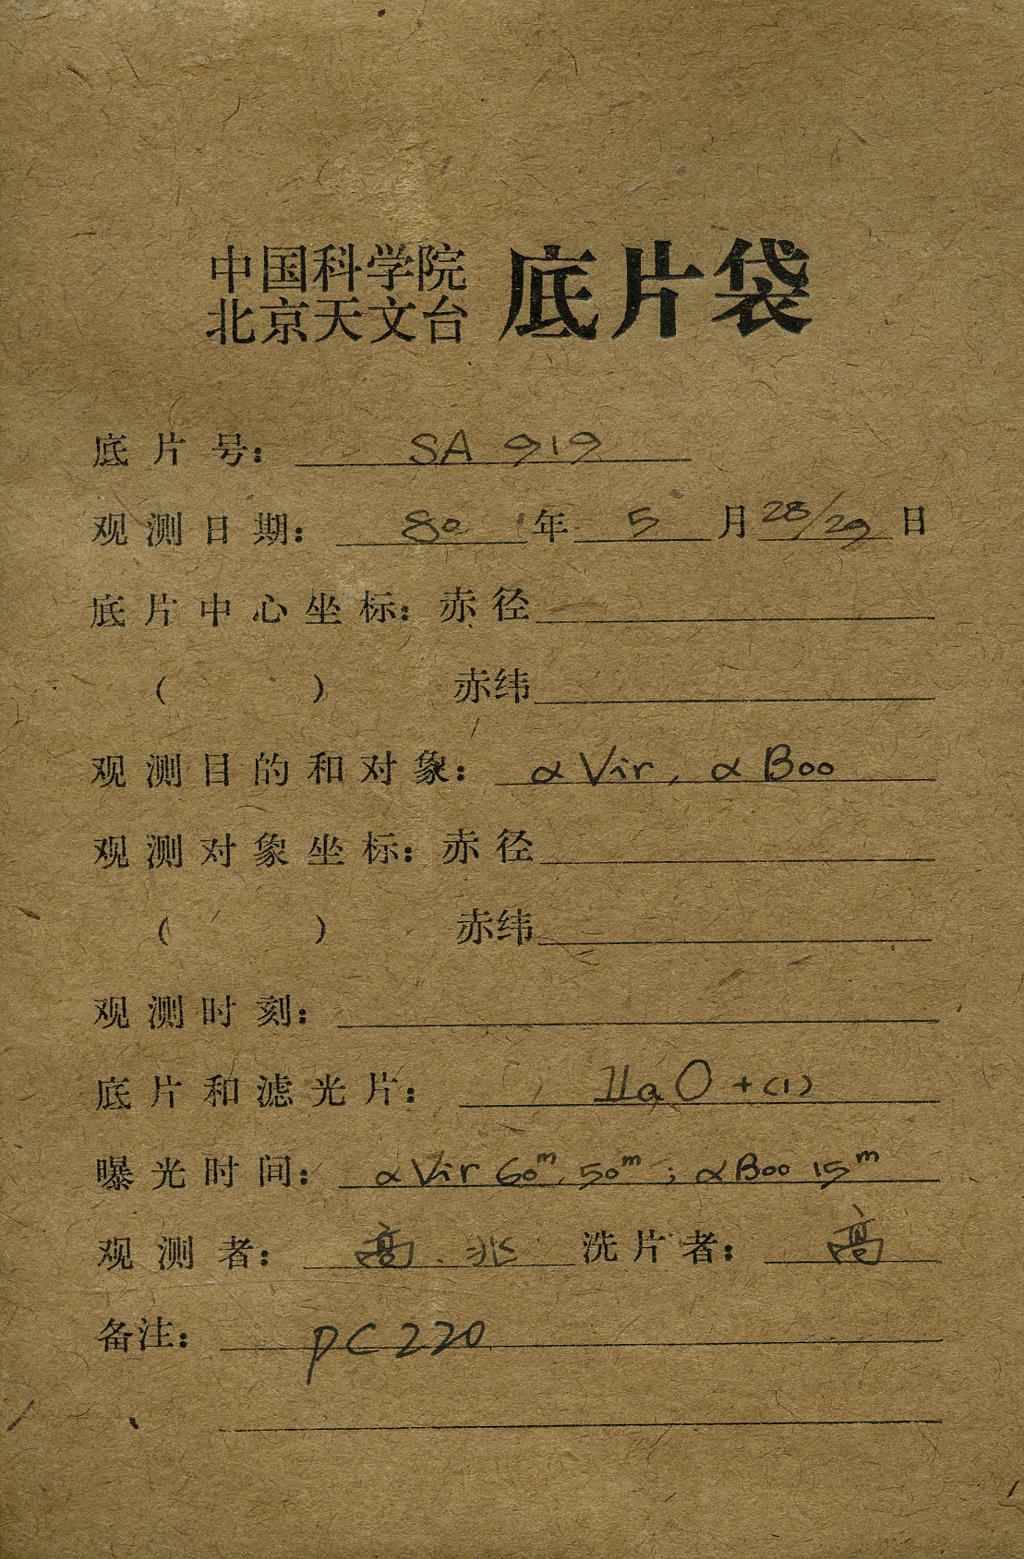 中国科学院
北京天文台 底片袋
底片号: SA 919
观测日期: 80 年 5 月 28/29 日
底片中心坐标: 赤径
( ) 赤纬
观测目的和对象: α Vir, α Boo
观测对象坐标: 赤径
( ) 赤纬
观测时刻:
底片和滤光片: IIaO + (1)
曝光时间: α Vir 60ᵐ, 50ᵐ; α Boo 15ᵐ
观测者: 高. 兆 洗片者: 高
备注: PC 220